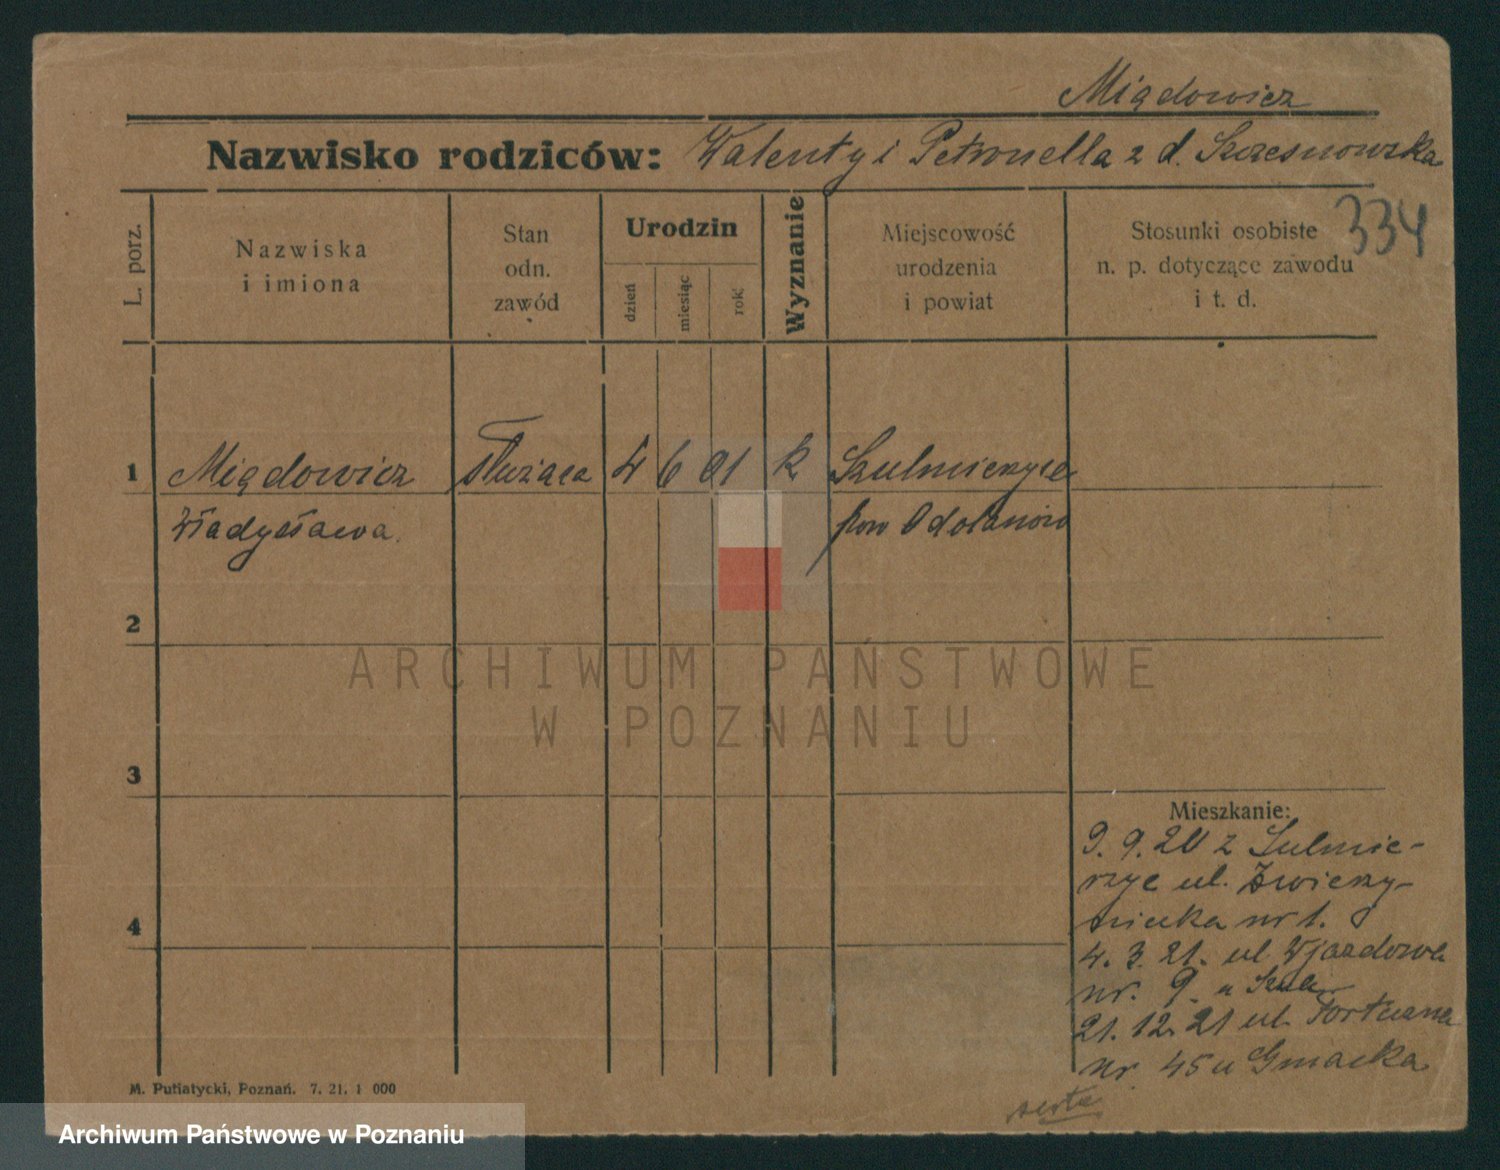 Miądowicz
Nazwisko rodziców: Walenty i Petronella z d. Szczesnowska
334
L. porz.
Nazwiska
i imiona
Stan
odn.
zawód
Urodzin
dzień
miesiąc
rok
Wyznanie
Miejscowość
urodzenia
i powiat
Stosunki osobiste
n. p. dotyczące zawodu
i t. d.
1 Miądowicz służąca 4 6 01 k Szulmierzyce
Władysława. pow Odolanów
2
ARCHIWUM PAŃSTWOWE
W POZNANIU
3
Mieszkanie:
9. 9. 20 z Sulmie-
rzyc ul. Zwierzy-
niecka nr 1.
4
4. 3. 21. ul Wjazdowa
nr. 9 u
21. 12. 21 ul.
nr. 45 u Gmacka
M. Putiatycki, Poznań. 7. 21. 1 000
Archiwum Państwowe w Poznaniu